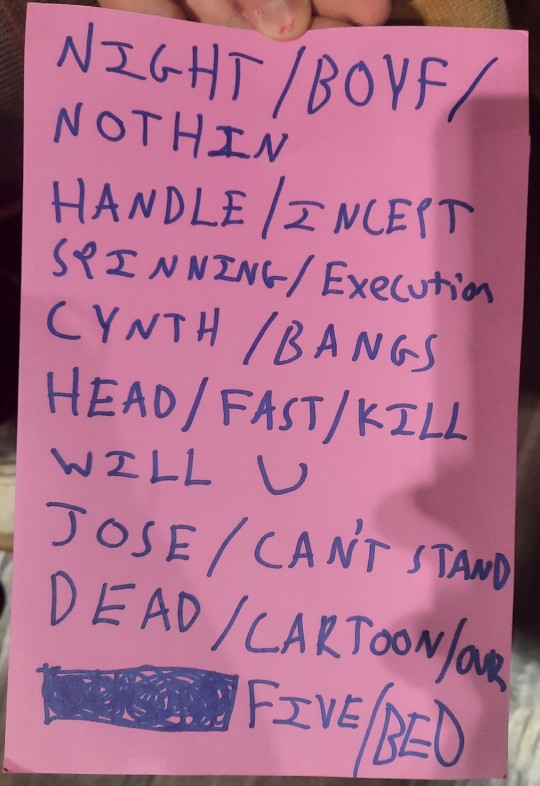 NIGHT/BOYF/
NOTHIN
HANDLE/INCEPT
SPINNING/Execution
CYNTH/BANGS
HEAD/FAST/KILL
WILL U
JOSE/CAN'T STAND
DEAD/CARTOON/OUR
FIVE/BED